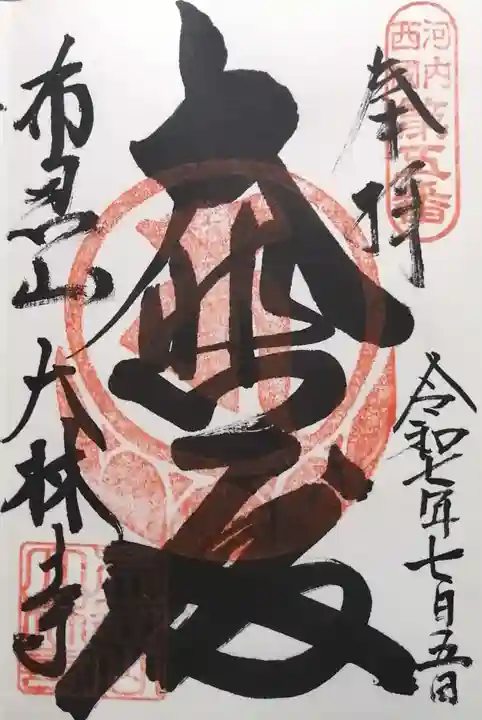 河内
西国
第五番
奉拝
令和七年七月五日
大悲殿
布忍山大林寺